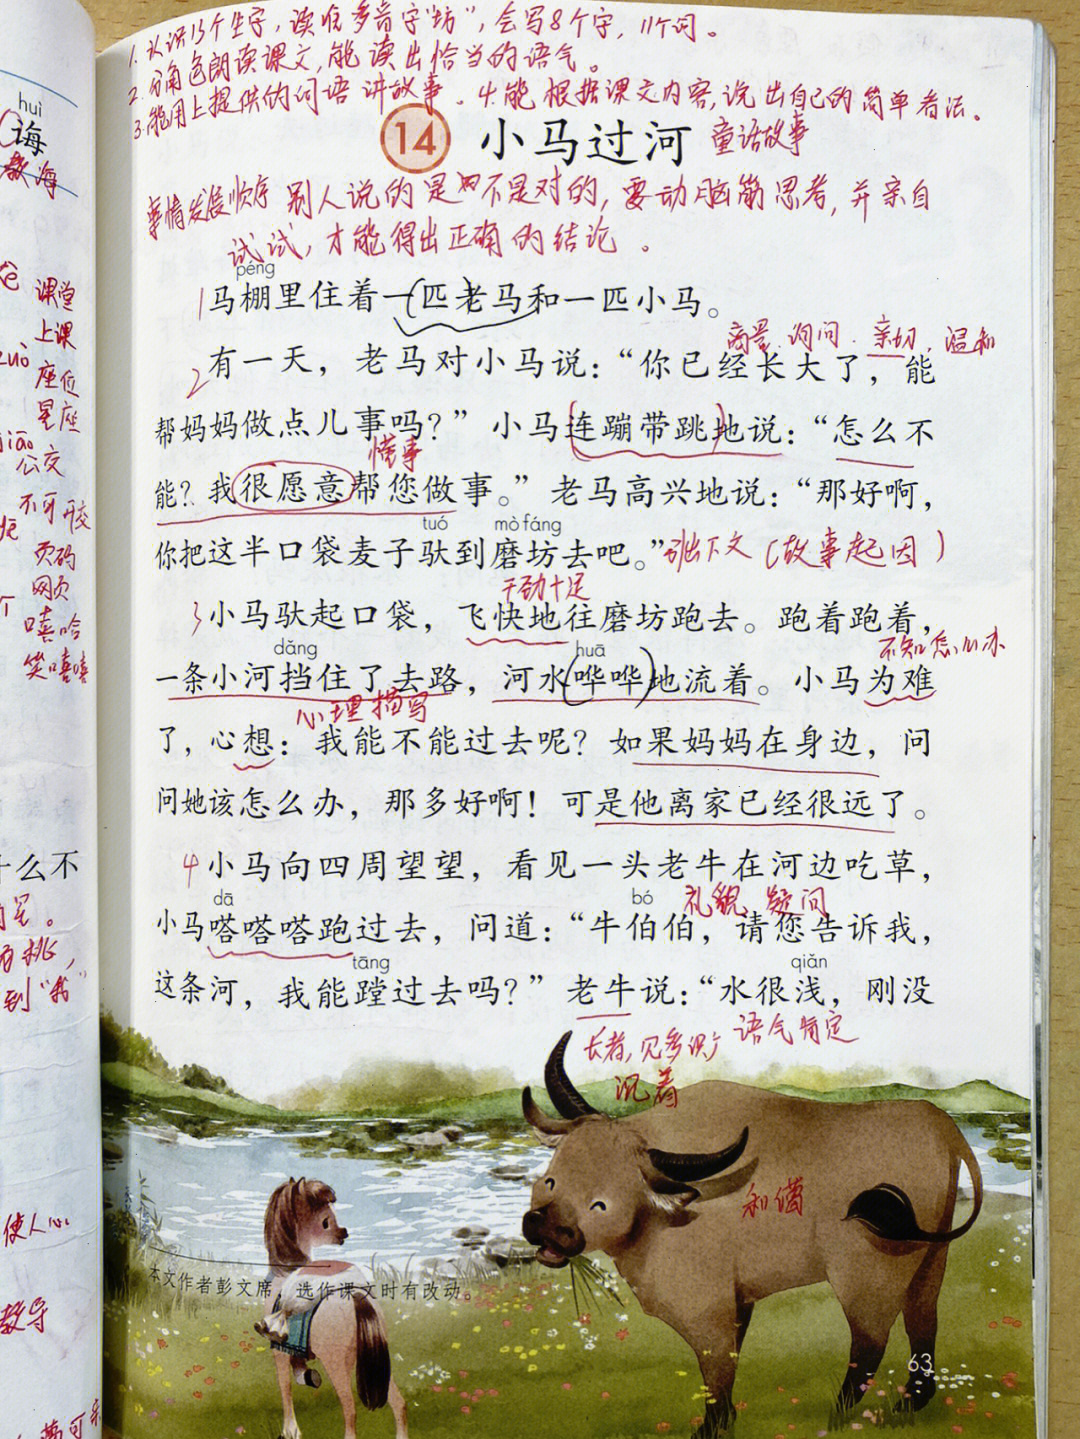 1.认识13个生字,读准多音字“坊”,会写8个字,11个词。
2.分角色朗读课文,能读出恰当的语气。
3.能用上提供的词语讲故事。4.能根据课文内容,说出自己的简单看法。
14 小马过河 童话故事
事情发展顺序 别人说的是不是对的,要动脑筋思考,并亲自
试试,才能得出正确的结论。
péng
1马棚里住着一匹老马和一匹小马。
商量 询问 亲切 温和
2有一天，老马对小马说：“你已经长大了，能
帮妈妈做点儿事吗？”小马连蹦带跳地说：“怎么不
懂事
能？我很愿意帮您做事。”老马高兴地说：“那好啊，
tuó mò fáng
你把这半口袋麦子驮到磨坊去吧。”引出下文(故事起因)
干劲十足
3小马驮起口袋，飞快地往磨坊跑去。跑着跑着，
dǎng huā 不知怎么办
一条小河挡住了去路，河水哗哗地流着。小马为难
心理描写
了，心想：我能不能过去呢？如果妈妈在身边，问
问她该怎么办，那多好啊！可是他离家已经很远了。
4小马向四周望望，看见一头老牛在河边吃草，
dā bó 礼貌 疑问
小马嗒嗒嗒跑过去，问道：“牛伯伯，请您告诉我，
tāng qiǎn
这条河，我能蹚过去吗？”老牛说：“水很浅，刚没
长者,见多识广 语气肯定
沉着
和蔼
本文作者彭文席，选作课文时有改动。
63
huì
诲
教诲
课堂
上课
zuò
座位
星座
jiāo
公交
不可开交
页码
网页
嘻哈
笑嘻嘻
什么不
到“我”
使人心
教导